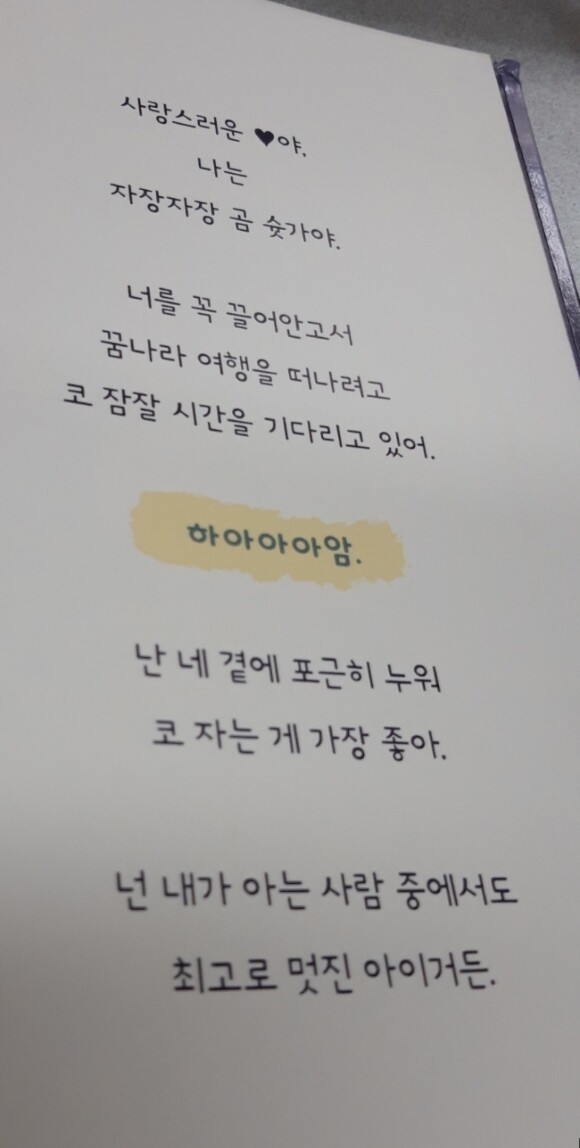 사랑스러운 ♥야.
나는
자장자장 곰 슛가야.
너를 꼭 끌어안고서
꿈나라 여행을 떠나려고
코 잠잘 시간을 기다리고 있어.
하아아아암.
난 네 곁에 포근히 누워
코 자는 게 가장 좋아.
넌 내가 아는 사람 중에서도
최고로 멋진 아이거든.